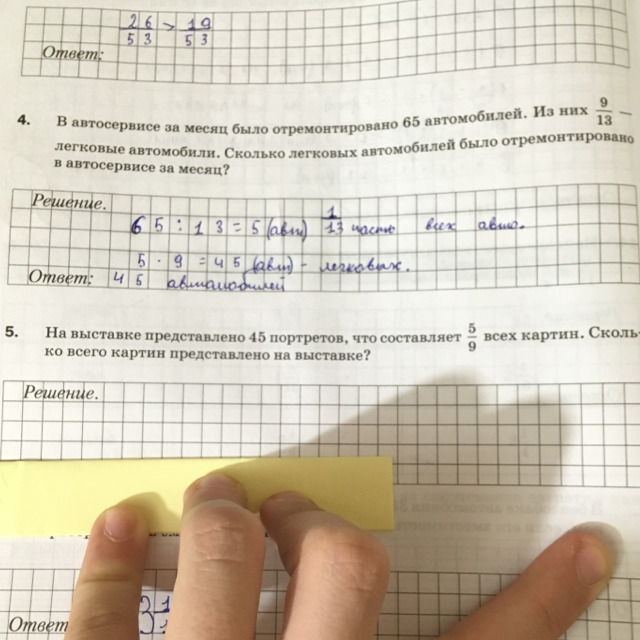 26/53 > 19/53
Ответ:
4. В автосервисе за месяц было отремонтировано 65 автомобилей. Из них 9/13 —
легковые автомобили. Сколько легковых автомобилей было отремонтировано
в автосервисе за месяц?
Решение.
65 : 13 = 5 (авт) 1/13 часть всех авто.
5 · 9 = 45 (авт) - легковых.
Ответ: 45 автомобилей
5. На выставке представлено 45 портретов, что составляет 5/9 всех картин. Сколь-
ко всего картин представлено на выставке?
Решение.
Ответ